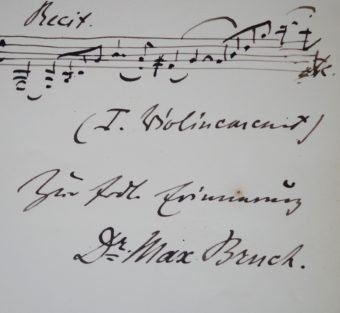 Recit.
etc.
(I. Violinconcert)
Zur frdl. Erinnerung
Dr. Max Bruch.